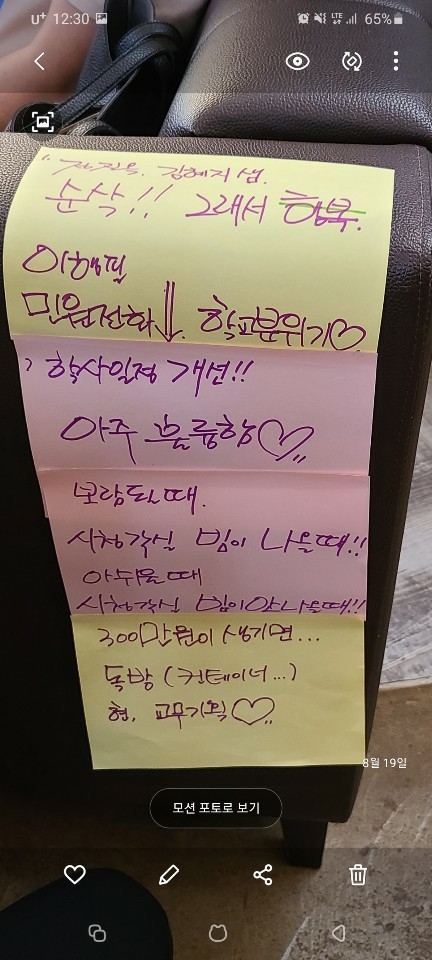 U+ 12:30 LTE 65%
김혜지 샘.
순삭!! 그래서 행복.
민원전화↓. 학교분위기♡
학사일정 개선!!
아주 훌륭함♡
보람될때.
시청각실 빔이 나올때!!
아쉬울때
시청각실 빔이 안나올때!!
300만원이 생기면...
독방 (컨테이너...)
현, 교무기획♡
8월 19일
모션 포토로 보기